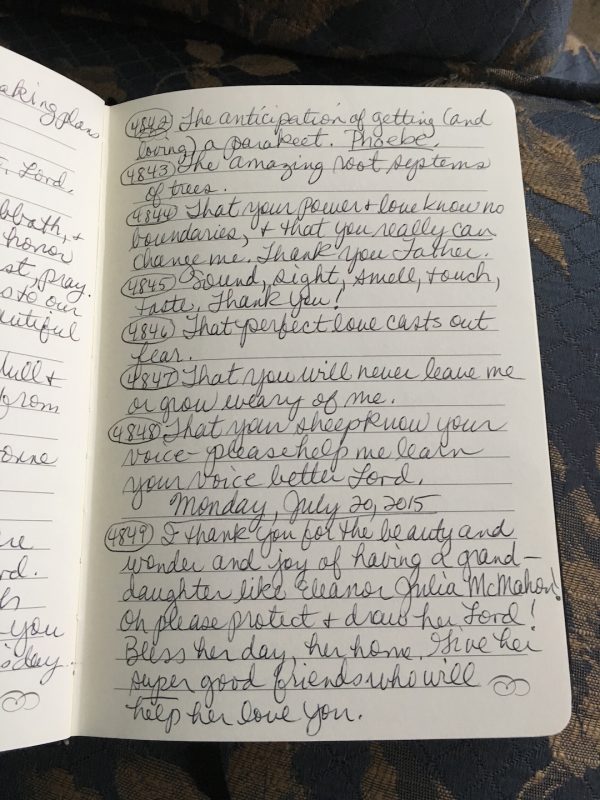 aking plans
Lord.
bbath, +
honor
st, pray.
s to our
autiful
full +
from
onne
ere
rd.
you
sday.
4842 The anticipation of getting (and
loving) a parakeet. Phoebe.
4843 The amazing root systems
of trees.
4844 That your power + love know no
boundaries, + that you really can
change me. Thank you Father.
4845 Sound, sight, smell, touch,
taste, Thank you!
4846 That perfect love casts out
fear.
4847 That you will never leave me
or grow weary of me.
4848 That your sheep know your
voice - please help me learn
your voice better Lord.
Monday, July 20, 2015
4849 I thank you for the beauty and
wonder and joy of having a grand-
daughter like Eleanor Julia McMahon!
Oh please protect + draw her Lord!
Bless her day, her home. Give her
super good friends who will
help her love You.